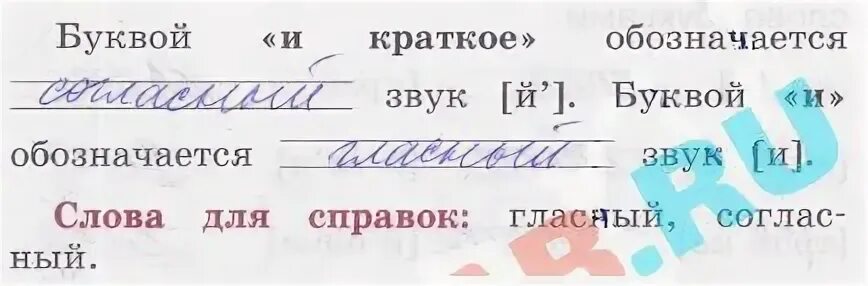 Буквой «и краткое» обозначается
согласный звук [й’]. Буквой «и»
обозначается гласный звук [и].
Слова для справок: гласный, соглас-
ный.